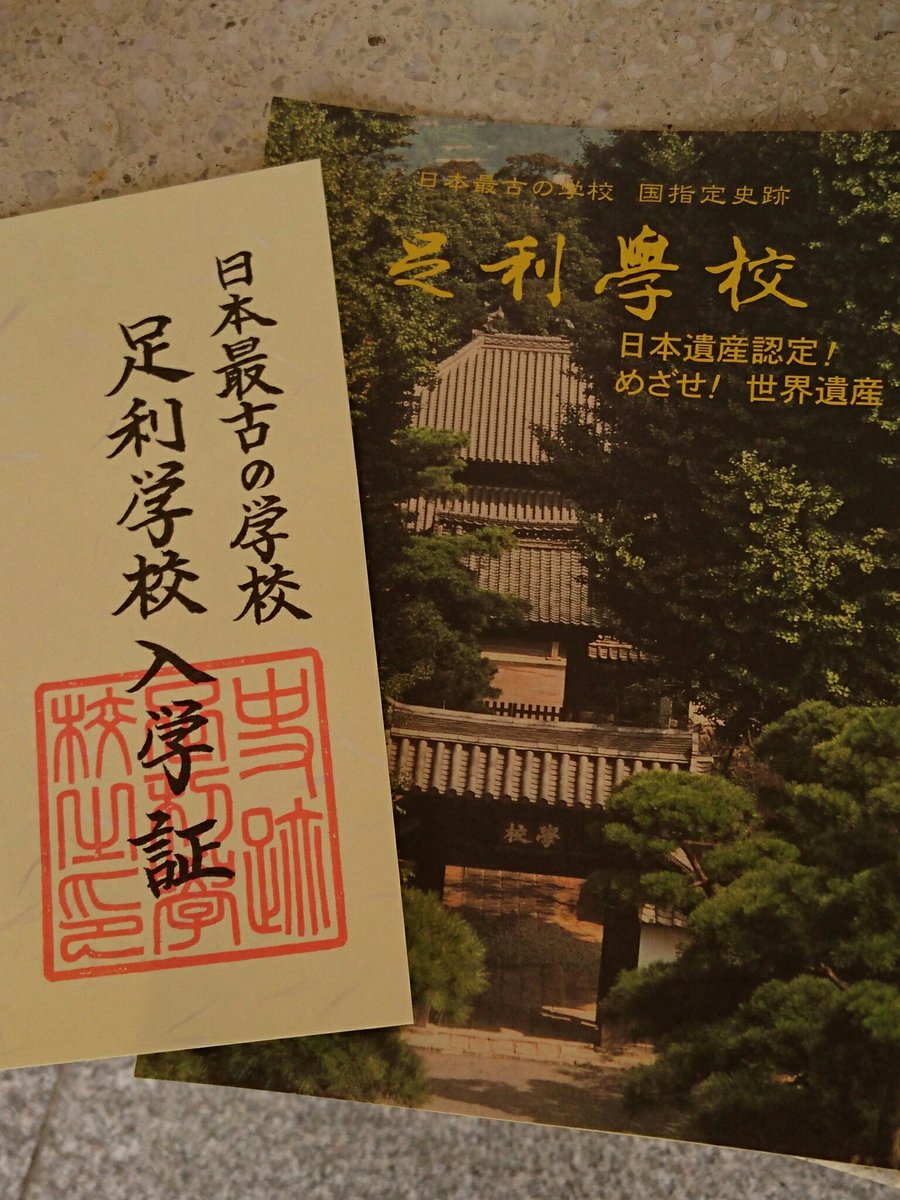 日本最古の学校
足利学校入学証
史跡
足利学
校之印
日本最古の学校 国指定史跡
足利學校
日本遺産認定!
めざせ! 世界遺産
學校